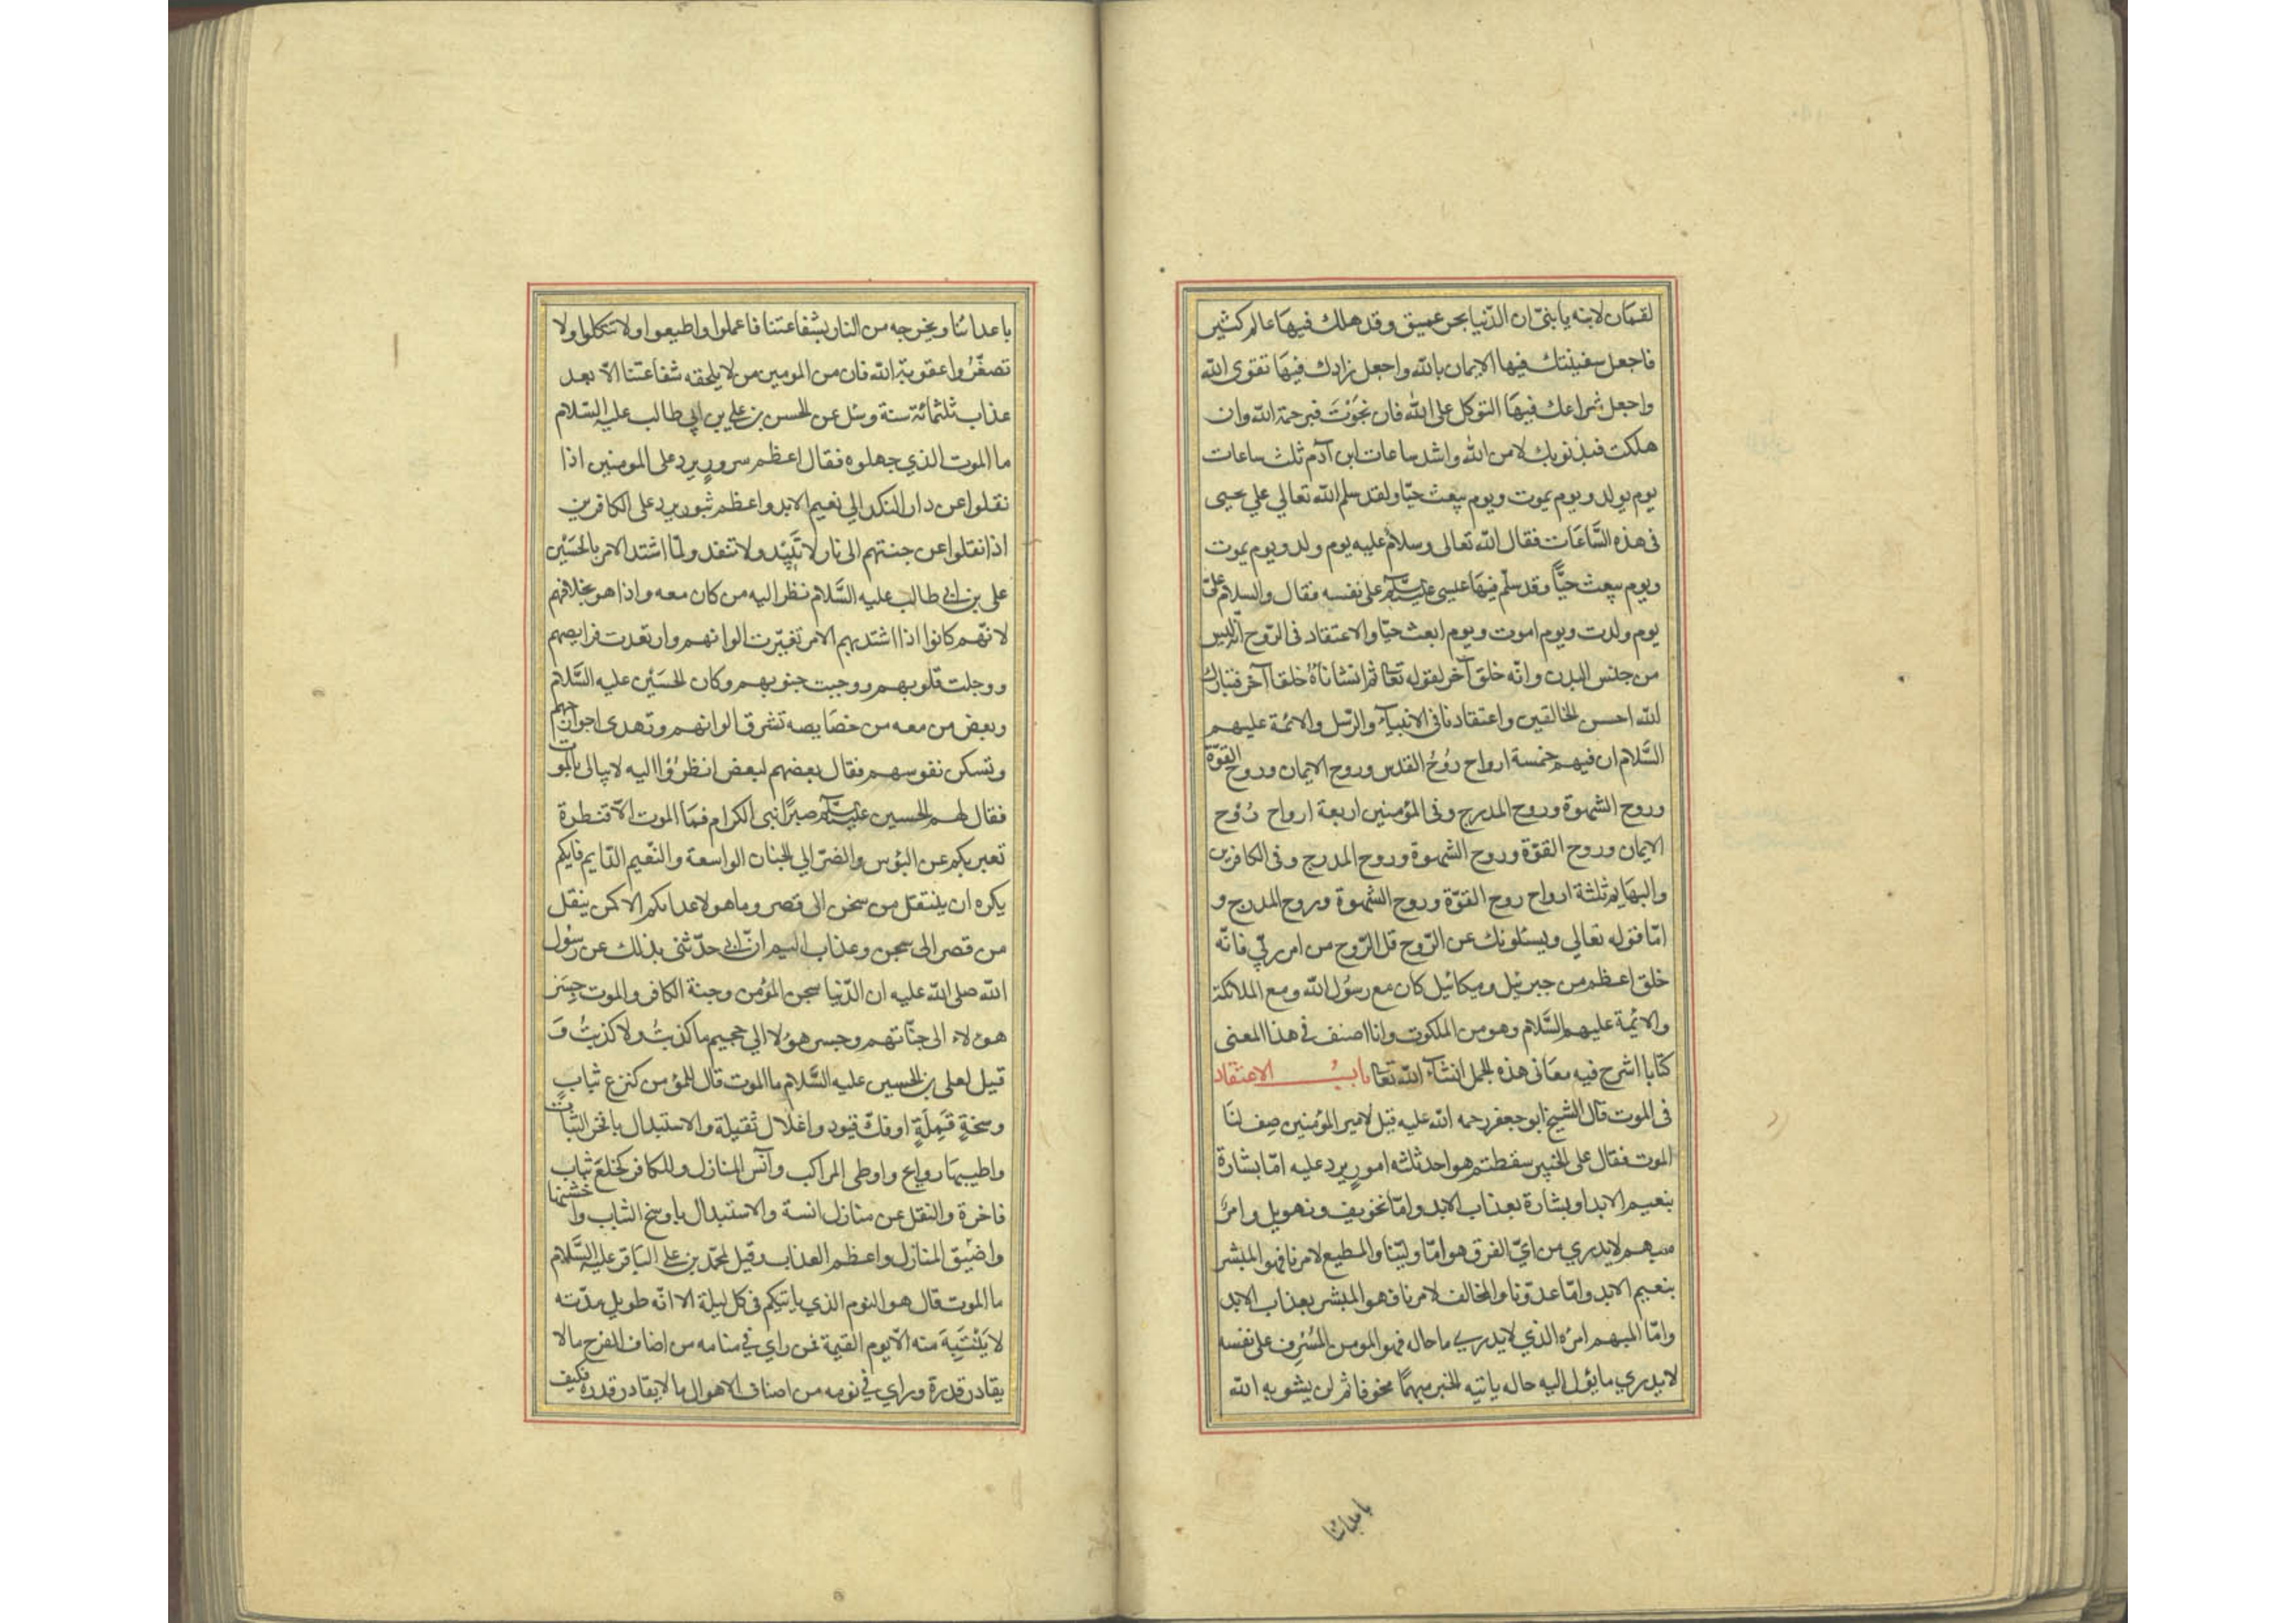 لقمان لابنه يا بنيّ ان الدّنيا بحر عميق وقد هلك فيها عالم كثير
فاجعل سفينتك فيها الايمان بالله واجعل زادك فيها تقوى الله
واجعل شراعك فيها التوكل على الله فان نجَوْتَ فبرحمة الله وان
هلكت فبذنوبك لا من الله واشد ساعات ابن آدم ثلث ساعات
يوم يولد ويوم يموت ويوم يبعث حيّا ولقد سلم الله تعالي علي يحيى
فى هذه السَّاعَات فقال الله تعالى وسلامٌ عليه يوم ولد ويوم يموت
ويوم يبعث حيًّا وقد سلّم فيها عيسى على نفسه فقال والسلام علىّ
يوم ولدت ويوم اموت ويوم ابعث حيّا والاعتقاد فى الرّوح انّه ليس
من جنس البدن وانّه خلق آخر لقوله تعا ثم انشاناهُ خلقا آخر فتبارك
الله احسن الخالقين واعتقادنا فى الانبياء والرّسل والائمة عليهم
السَّلام ان فيهم خمسة ارواح رُوْحُ القدس وروح الايمان وروح القوّة
وروح الشهوة وروح المدرج وفى المؤمنين اربعة ارواح رُوْح
الايمان وروح القوّة وروح الشهوة وروح المدرج وفى الكافرين
والبهايم ثلثة ارواح روح القوّة وروح الشهوة وروح المدرج و
امّا قوله تعالي ويسئلونك عن الرّوح قل الرّوح من امر ربّي فانّه
خلق اعظم من جبرئيل وميكائيل كان مع رسُول الله ومع الملائكة
والائمة عليهم السَّلام وهو من الملكوت وانا اصنف في هذا المعنى
كتابا اشرح فيه معَانى هذه الجمل انشآء الله تعا باب الاعتقاد
فى الموت قال الشيخ ابو جعفر رحمه الله عليه قيل لامير المؤمنين صِف لنَا
الموت فقال على الخبير سقطتم هو احد ثلثه امورٍ يرد عليه امّا بشارة
بنعيم الابد او بشارة بعذاب الابد وامّا تخويف وتهويل وامرٌ
مبهم لا يدري من ايّ الفرق هو امّا وليّنا والمطيع لامرنا فهو المبشر
بنعيم الابد وامّا عدوّنا والمخالف لامرنا فهو المبشر بعذاب الابد
وامّا المبهم امرُه الذي لا يدرى ما حاله فهو المومن المُسْرِف على نفسه
لا يدري ما يؤل اليه حاله ياتيه الخبر مبهمًا مخوفا ثم لن يشوبه الله
باعدائنا
باعدائنا ويخرجه من النار بشفاعتنا فاعملوا واطيعوا ولا تتكلوا ولا
تصغّرُوا عقوبة الله فان من المومين من لا يلحقه شفاعتنا الاّ بعد
عذاب ثلثمائة سنة وسئل عن الحسن بن علي بن ابي طالب عليه السّلام
ما الموت الذي جهلوه فقال اعظم سرورٍ يرد على المومنين اذا
نقلوا عن دار النكد الي نعيم الابد واعظم ثبور يرد على الكافرين
اذا نقلوا عن جنتهم الى نار لا تَبِيْد ولا تنفد ولمّا اشتد الامر بالحسَيْن
على بن ابي طالب عليه السَّلام نظر اليه من كان معه واذا هو بخلافهم
لانّهم كانوا اذا اشتد بهم الامر تغيّرت الوانهم وارتعدت فرايصهم
ووجلت قلوبهم ووجبت جنوبهم وكان الحسَيْن عليه السَّلام
وبعض من معه من خصَايصه تشرق الوانهم وتهدى اجوارحهم
وتسكن نفوسهم فقال بعضهم لبعض انظرُوْا اليه لا يبالى بالموت
فقال لهم الحسين صبرًا نبى الكرام فمَا الموت الاّ قنطرة
تعبر بكم عن البؤس والضرّ الي الجنان الواسعة والنّعيم الدّايم فايكم
يكره ان ينتقل من سخن الى قصر وما هو لاعدائكم الا كمن ينقل
من قصر الى سجن وعذاب اليم انّ ابي حدّثنى بذلك عن رسُول
الله صلى الله عليه ان الدّنيا سجن المؤمن وجنة الكافر والموت جِسَر
هؤلاء الى جنّاتهم وجسر هؤلا الي جحيم ما كذبتُ ولا كذبتُ وَ
قيل لعلى بن الحسين عليه السَّلام ما الموت قال للمؤمن كنزع ثيابٍ
وسخةٍ قَمِلَةٍ او فكّ قيود واغلال ثقيلة والاستبدال بافخر الثياب
واطيبها روايح واوطى المراكب وآنس المنازل وللكافر كخلعَ ثياب
فاخرة والنقل عن منازل انسة والاستبدال باوسخ الثياب واخشنها
واضيق المنازل واعظم العذاب وقيل لمحمّد بن على البَاقر عليه السَّلام
ما الموت قال هو النوم الذي ياتيكم فى كل ليلة الا انّه طويل مدّته
لا يَنْتَبِهَ منه الاّ يوم القيمة فمن راي في منامه من اضاف الفرح ما لا
يقادر قدرة وراي في نومه من اصناف الاهوال ما لا يقادر قدره فكيف